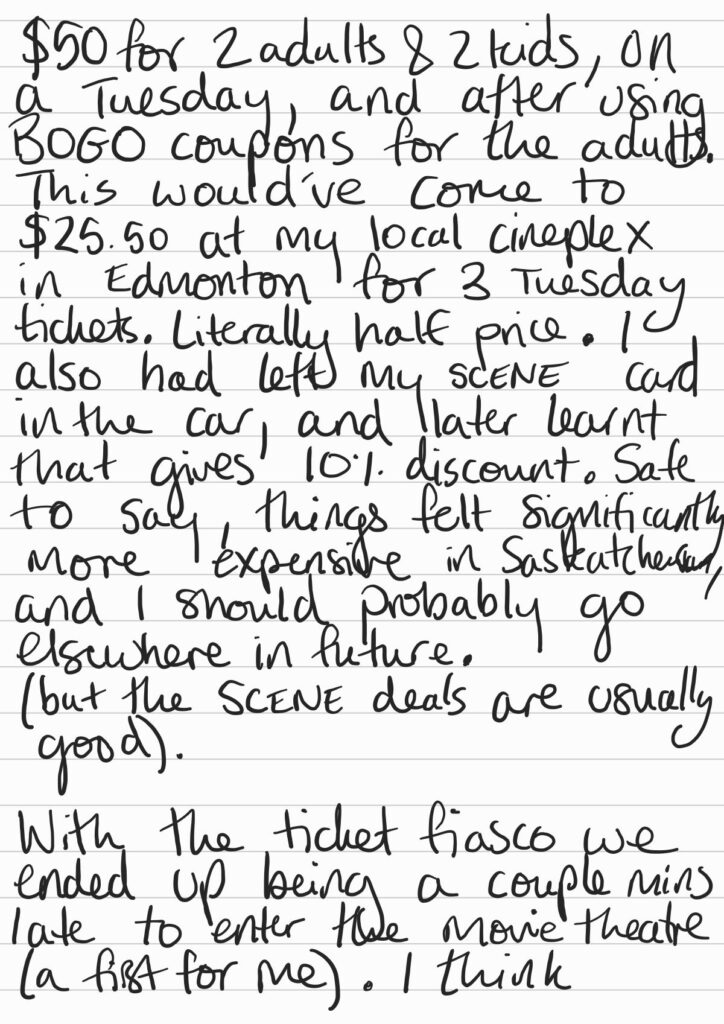 $50 for 2 adults & 2 kids, on
a Tuesday, and after using
BOGO coupons for the adults.
This would've come to
$25.50 at my local cineplex
in Edmonton for 3 Tuesday
tickets. Literally half price. I
also had left my SCENE card
in the car, and later learnt
that gives 10% discount. Safe
to say, things felt significantly
more expensive in Saskatchewan,
and I should probably go
elsewhere in future.
(but the SCENE deals are usually
good).
With the ticket fiasco we
ended up being a couple mins
late to enter the movie theatre
(a first for me). I think